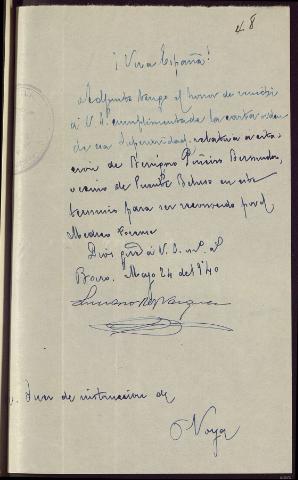 48
¡Viva España!
Adjunto tengo el honor de remitir
a V. S. cumplimentada la carta orden
de esa Superioridad relativa a cita-
de Benigno Piñeiro Bermudez,
vecino de Puente Beluso en este
termino para ser reconocido por el
Medico Forense
Dios gue. á V. S. m. a.
Boiro, Mayo 24 del 1940
Juez de instrucción de
Noya